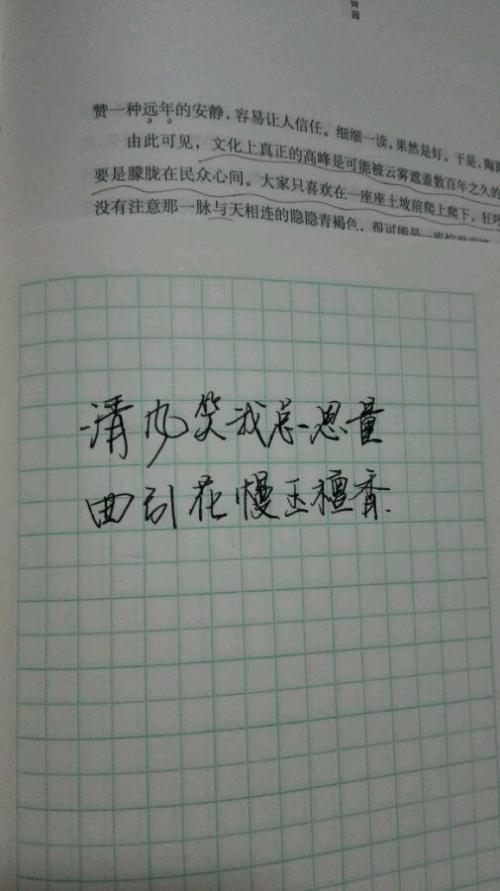 赞一种远年的安静，容易让人信任。细细一读，果然是好。于是，陶
由此可见，文化上真正的高峰是可能被云雾遮盖数百年之久的
要是朦胧在民众心间。大家只喜欢在一座座土坡前爬上爬下，狂
没有注意那一脉与天相连的隐隐青褐色，很可能是一座
清风笑我总思量
曲引花慢玉檀香.